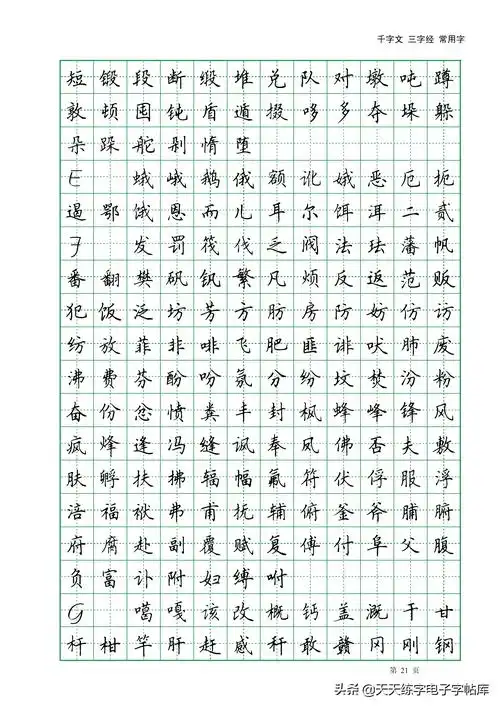 千字文 三字经 常用字
短锻段断缎堆兑队对墩吨蹲
敦顿囤钝盾遁掇哆多夺垛躲
朵跺舵剁惰堕
E 蛾峨鹅俄额讹娥恶厄扼
遏鄂饿恩而儿耳尔饵洱二贰
F 发罚筏伐乏阀法珐藩帆
番翻樊矾钒繁凡烦反返范贩
犯饭泛坊芳方肪房防妨仿访
纺放菲非啡飞肥匪诽吠肺废
沸费芬酚吩氛分纷坟焚汾粉
奋份忿愤粪丰封枫蜂峰锋风
疯烽逢冯缝讽奉凤佛否夫敷
肤孵扶拂辐幅氟符伏俘服浮
涪福袱弗甫抚辅俯釜斧脯腑
府腐赴副覆赋复傅付阜父腹
负富讣附妇缚咐
G 噶嘎该改概钙盖溉干甘
杆柑竿肝赶感秆敢赣冈刚钢
第 21 页
头条 @天天练字电子字帖库